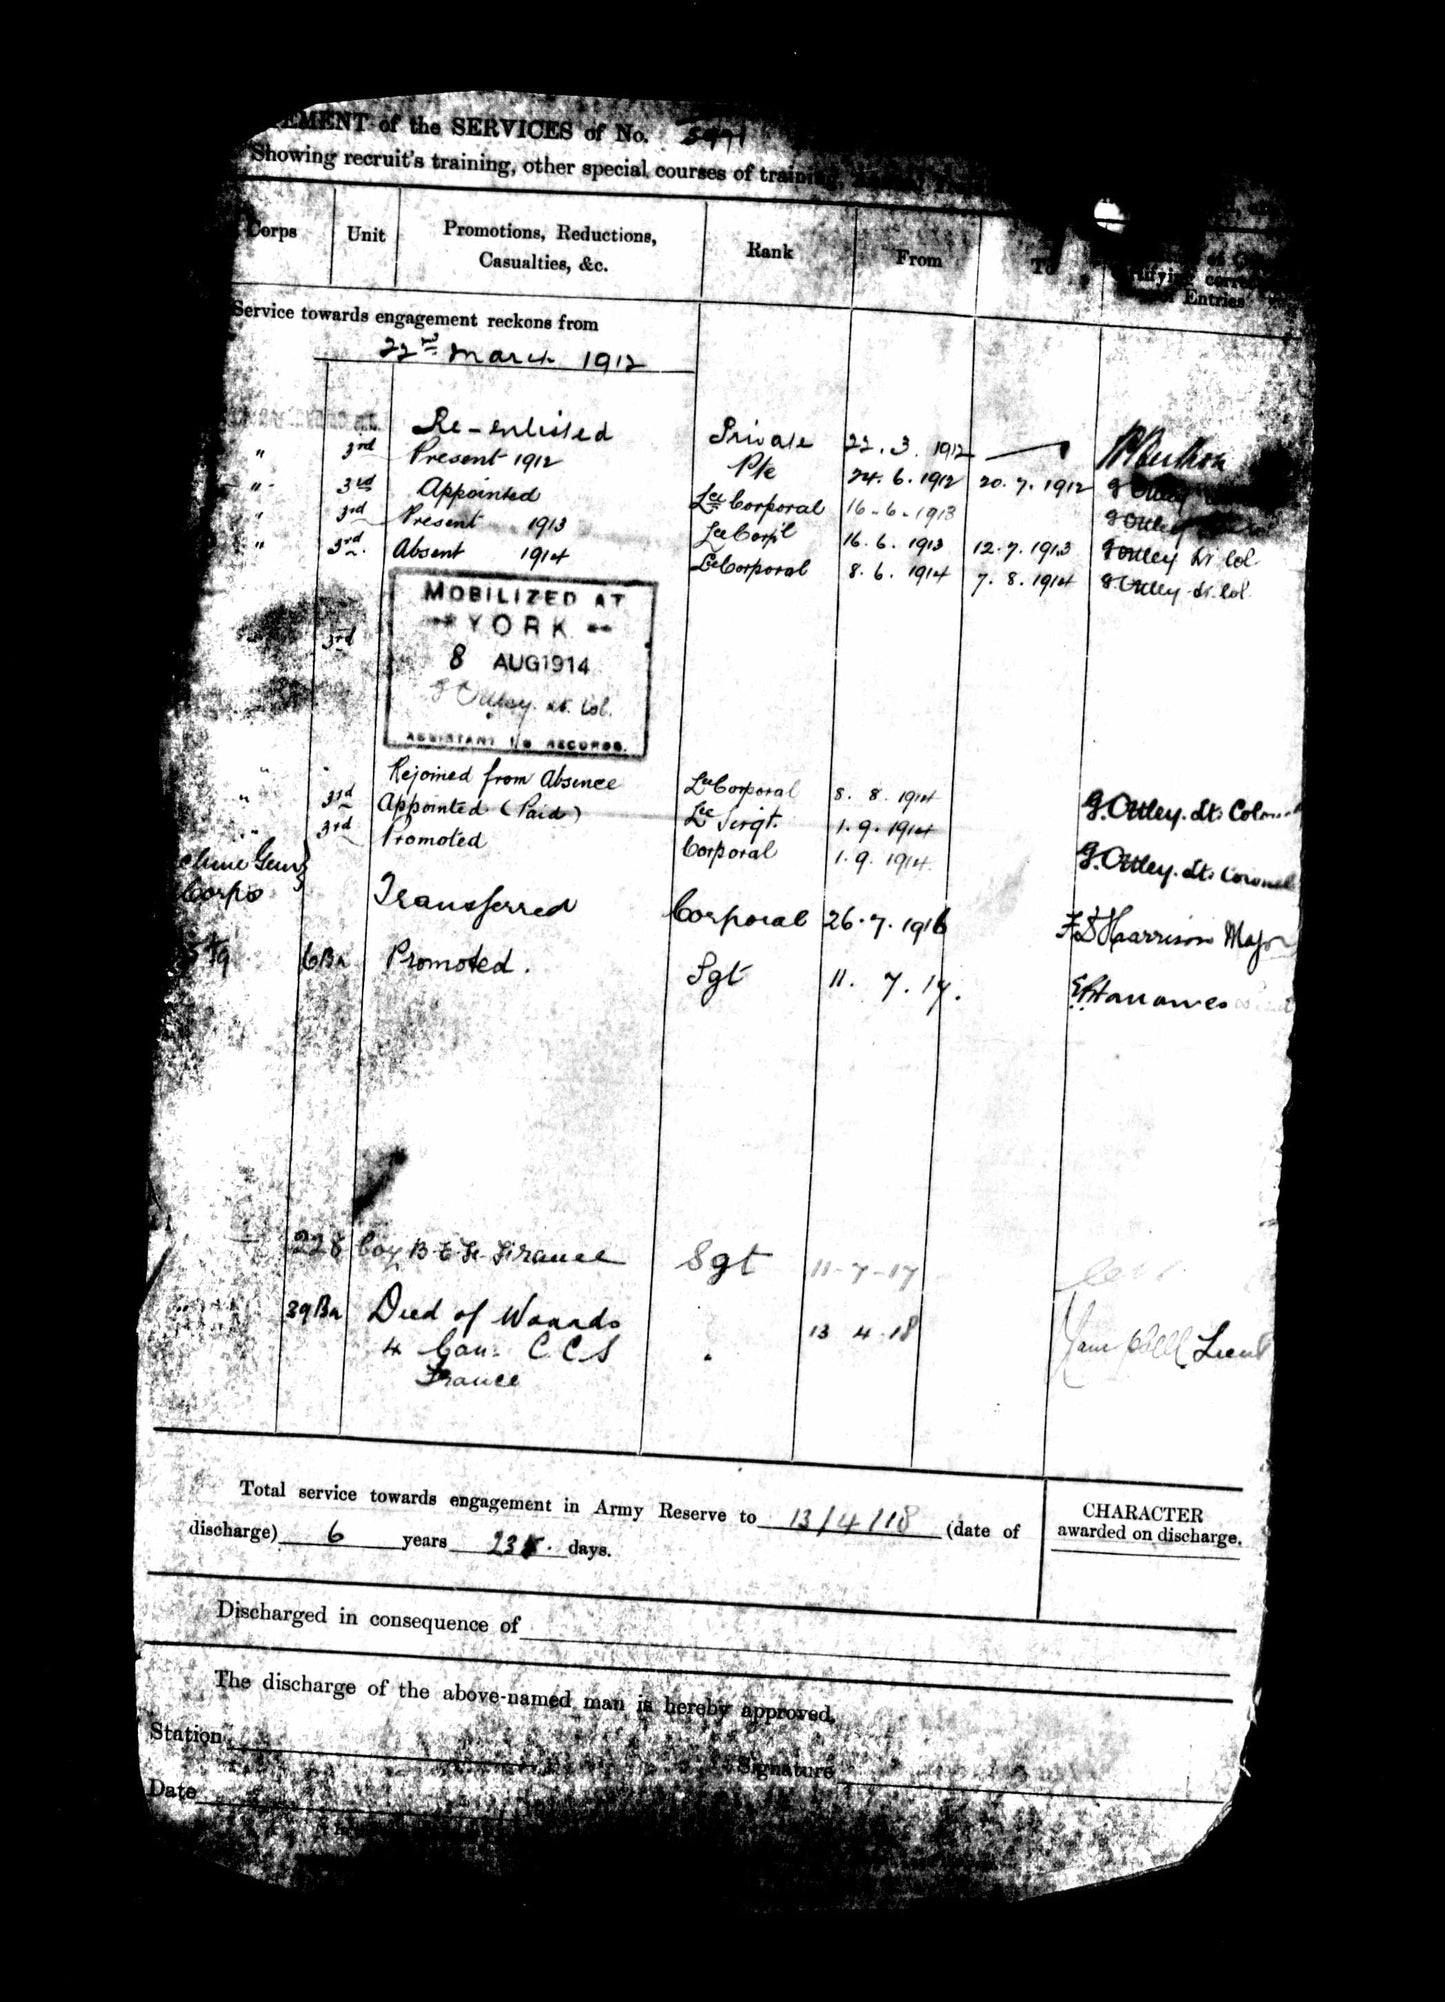 EMENT of the SERVICES of No.
Showing recruit's training, other special courses of training,
Corps Unit Promotions, Reductions, Casualties, &c. Rank From To
of Entries
Service towards engagement reckons from
22nd March 1912
Re-enlisted Private 22. 3. 1912
" 3rd Present 1912 Pte 24. 6. 1912 20. 7. 1912 G Ottley
" 3rd Appointed Lce Corporal 16-6-1913 G Ottley
" 3rd Present 1913 Lce Corpl 16. 6. 1913 12. 7. 1913 G Ottley Lt Col
" 3rd Absent 1914 Lce Corporal 8. 6. 1914 7. 8. 1914 G Ottley Lt. Col.
MOBILIZED AT
YORK
3rd 8 AUG 1914
G Ottley. Lt. Col.
ASSISTANT I/C RECORDS.
" Rejoined from Absence Lce Corporal 8. 8. 1914 G. Ottley. Lt. Colonel
" 3rd Appointed (Paid) Lce Sergt. 1. 9. 1914
" 3rd Promoted Corporal 1. 9. 1914 G. Ottley. Lt. Colonel
chine Guns
Corps Transferred Corporal 26. 7. 1916 F Harrison Major
6 Bn Promoted. Sgt 11. 7. 17.
228 Coy B.E.F. France Sgt 11-7-17
" 39 Bn Died of Wounds " 13 4 18 Campbell Lieut
4 Can. C C S
France
Total service towards engagement in Army Reserve to 13/4/18 (date of
discharge) 6 years 23 days.
CHARACTER
awarded on discharge.
Discharged in consequence of
The discharge of the above-named man is hereby approved.
Station
Signature
Date